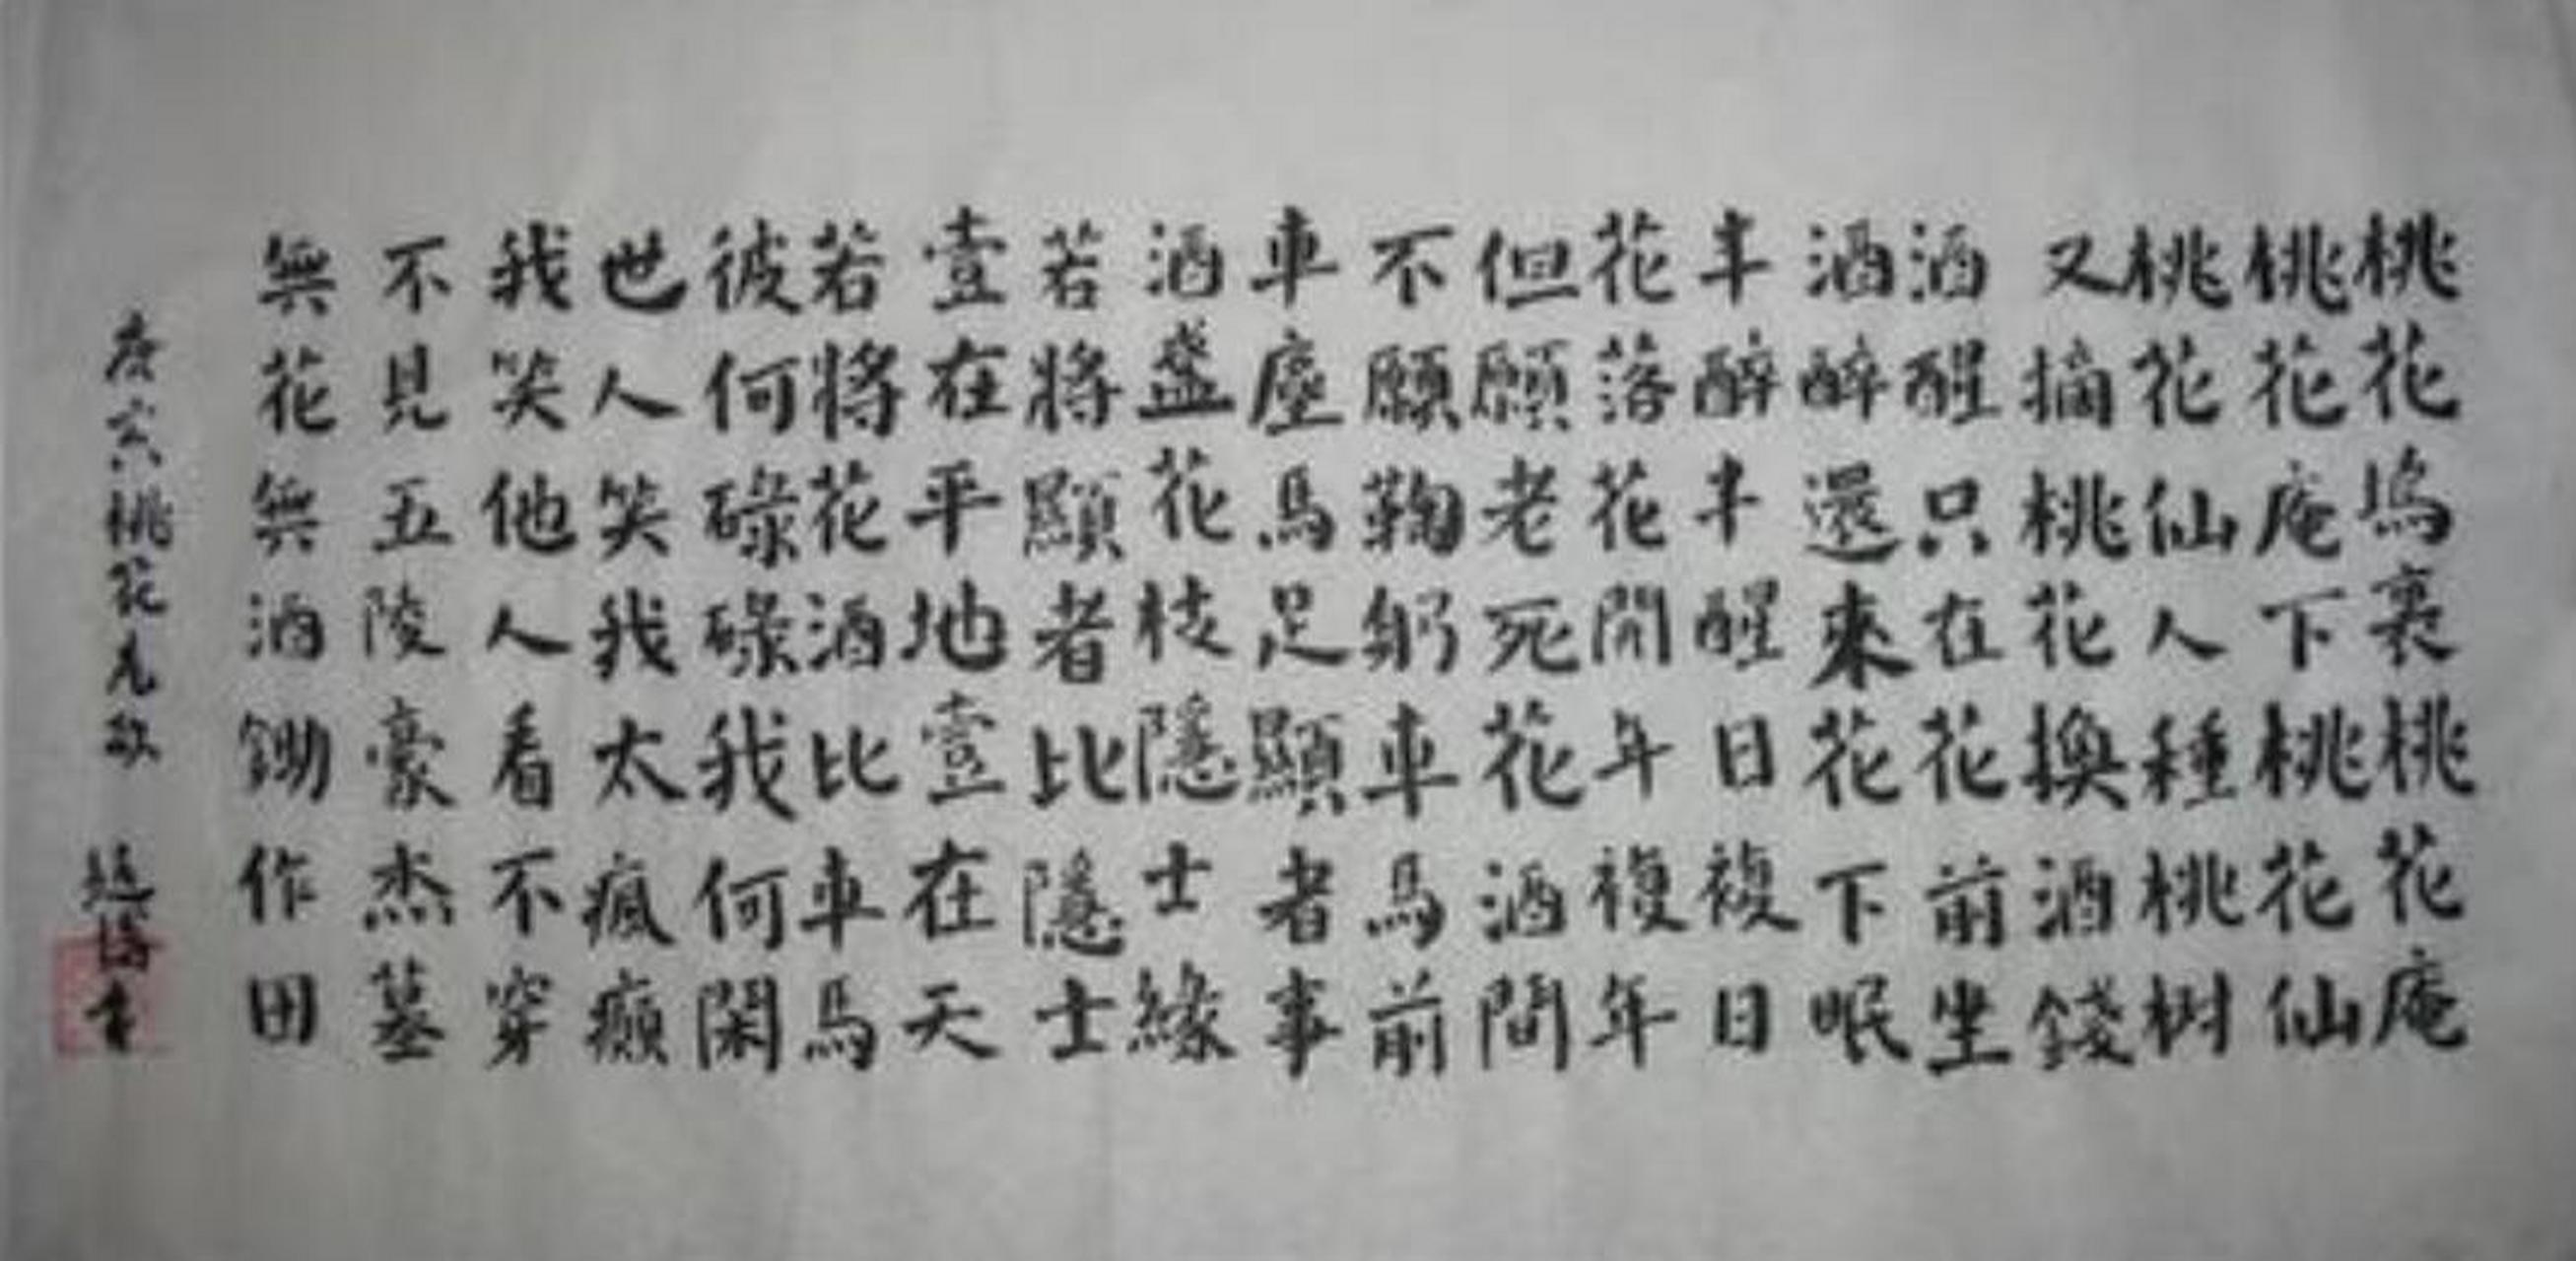 桃花塢裏桃花庵
桃花庵下桃花仙
桃花仙人種桃树
又摘桃花換酒錢
酒醒只在花前坐
酒醉還來花下眠
半醉半醒日複日
花落花開年複年
但願老死花酒間
不願鞠躬車馬前
車塵馬足顯者事
酒盞花枝隱士緣
若將顯者比隱士
壹在平地壹在天
若將花酒比車馬
彼何碌碌我何閑
世人笑我太瘋癲
我笑他人看不穿
不見五陵豪杰墓
無花無酒鋤作田